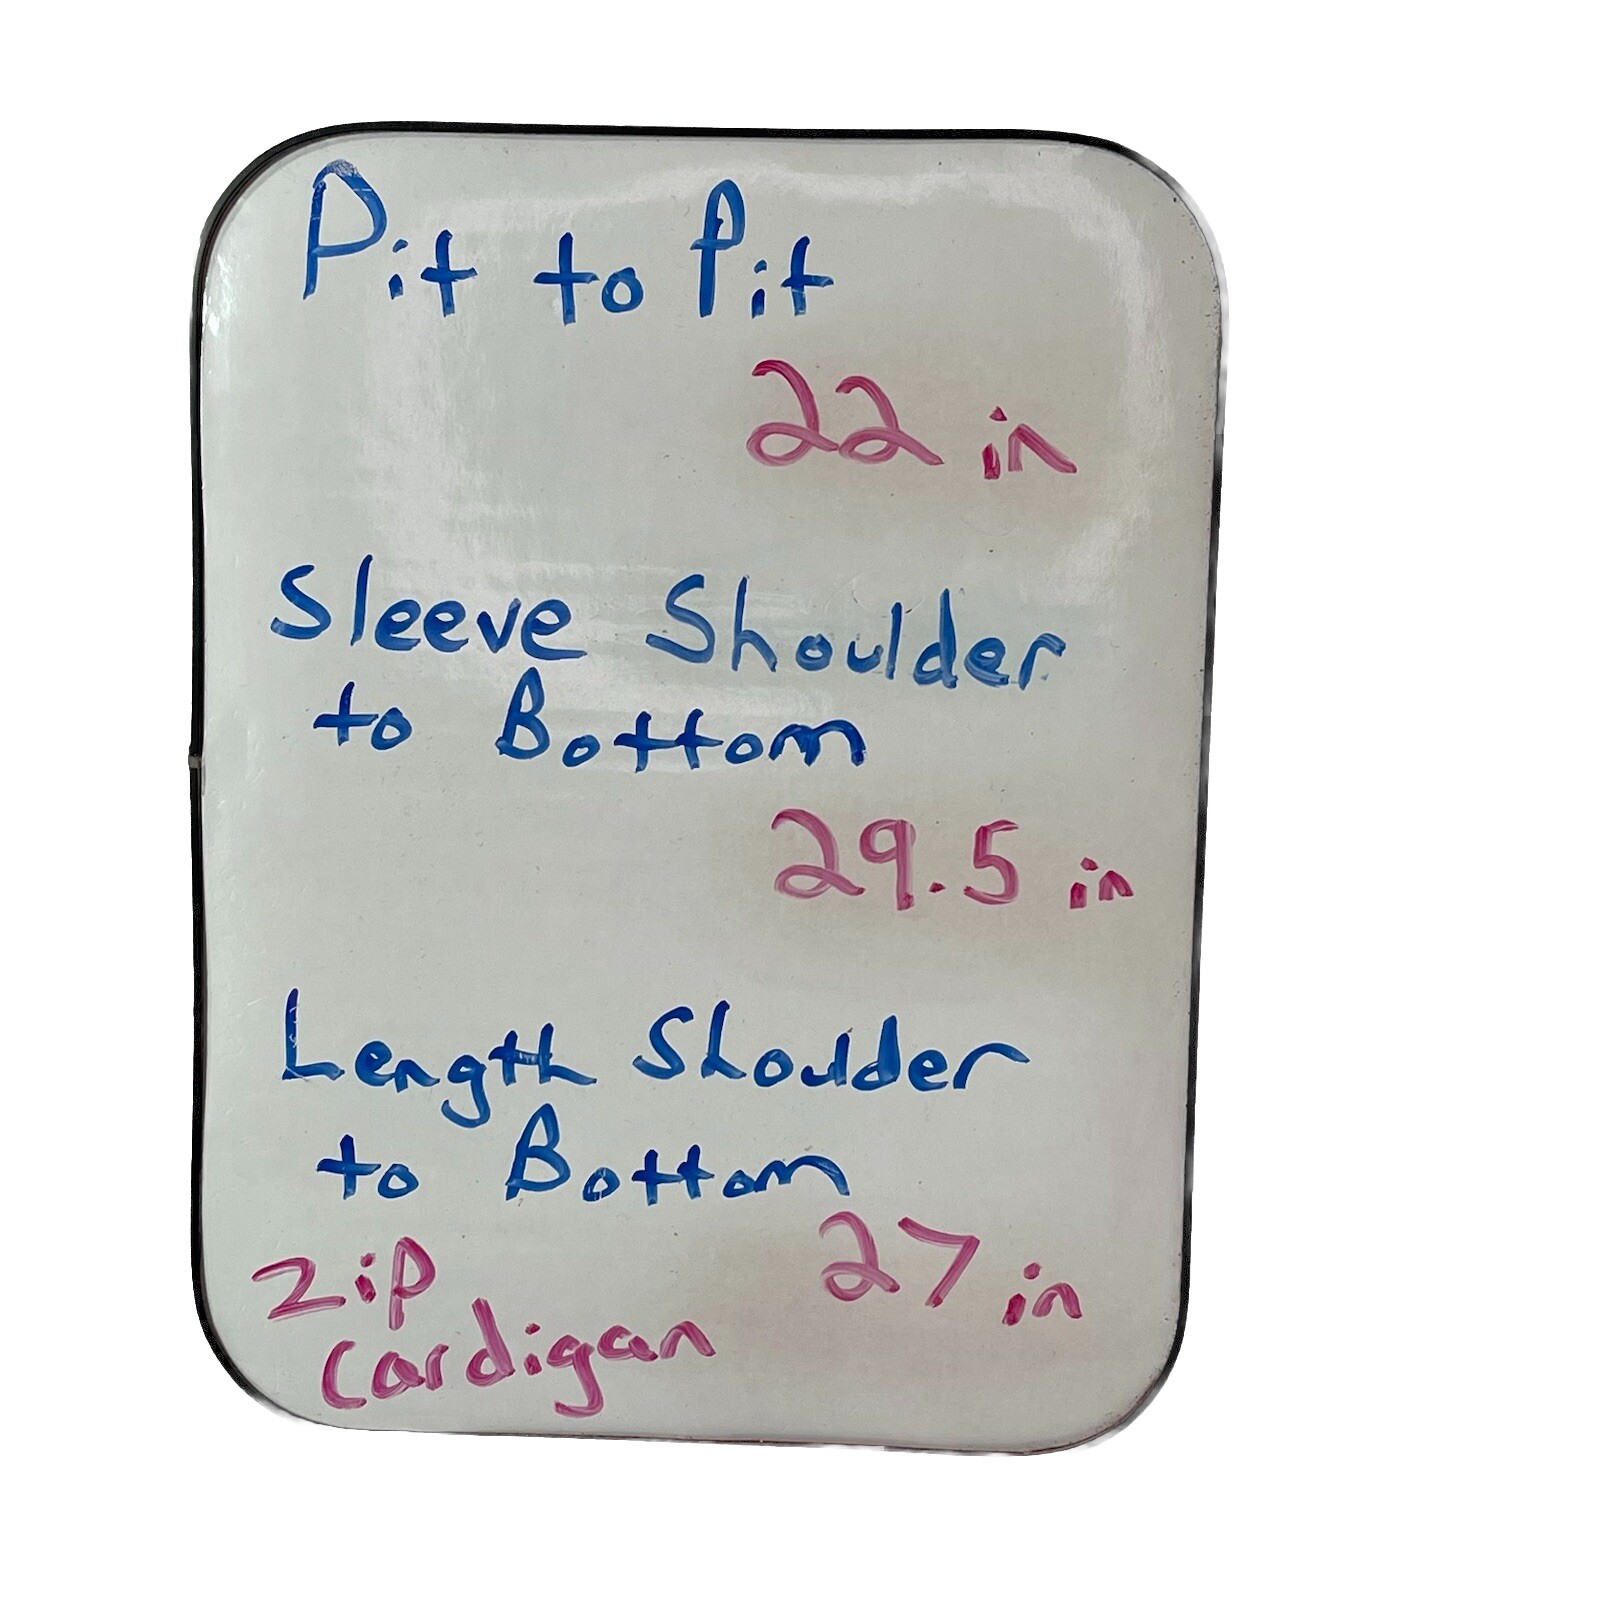 Pit to Pit
22 in
Sleeve Shoulder
to Bottom
29.5 in
Length Shoulder
to Bottom
27 in
Zip
Cardigan